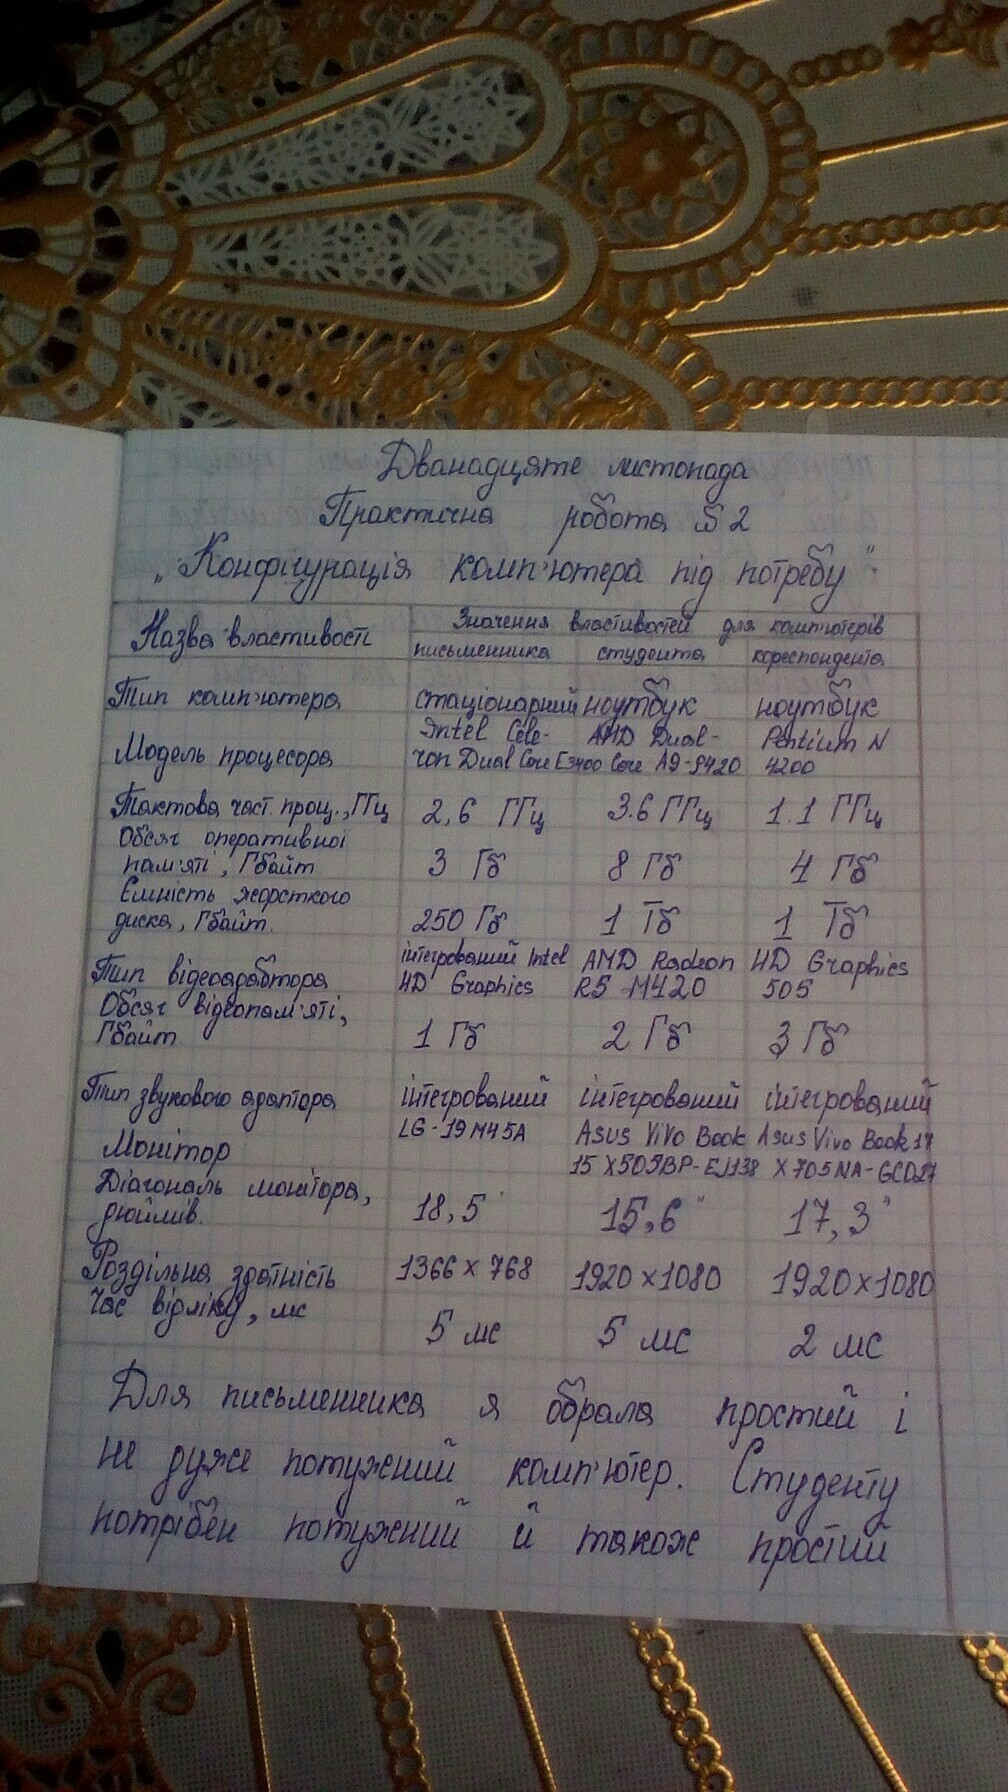 Дванадцяте листопада
Практична робота №2
„Конфігурація комп'ютера під потребу"
Назва властивості
Значення властивостей для комп'ютерів
письменника студента кореспондента
Тип комп'ютера стаціонарний ноутбук ноутбук
Модель процесора Intel Cele- AMD Dual- Pentium N
ron Dual Core E3400 Core A9-9420 4200
Тактова част. проц., ГГц 2,6 ГГц 3.6 ГГц 1.1 ГГц
Обсяг оперативної
пам'яті, Гбайт 3 Гб 8 Гб 4 Гб
Ємність жорсткого
диска, Гбайт. 250 Гб 1 Тб 1 Тб
Тип відеоадабтора інтегрований Intel AMD Radeon HD Graphics
HD Graphics R5 M420 505
Обсяг відеопам'яті,
Гбайт 1 Гб 2 Гб 3 Гб
Тип звукового адаптора інтегрований інтегрований інтегрований
Монітор LG-19M45A Asus Vivo Book Asus Vivo Book 17
15 X505BP-EJ138 X705NA-GC027
Діагональ монітора,
дюймів. 18,5" 15,6" 17,3"
Роздільна здатність 1366 x 768 1920 x 1080 1920 x 1080
Час відліку, мс
5 мс 5 мс 2 мс
Для письменника я обрала простий і
не дуже потужний комп'ютер. Студенту
потрібен потужний й також простий